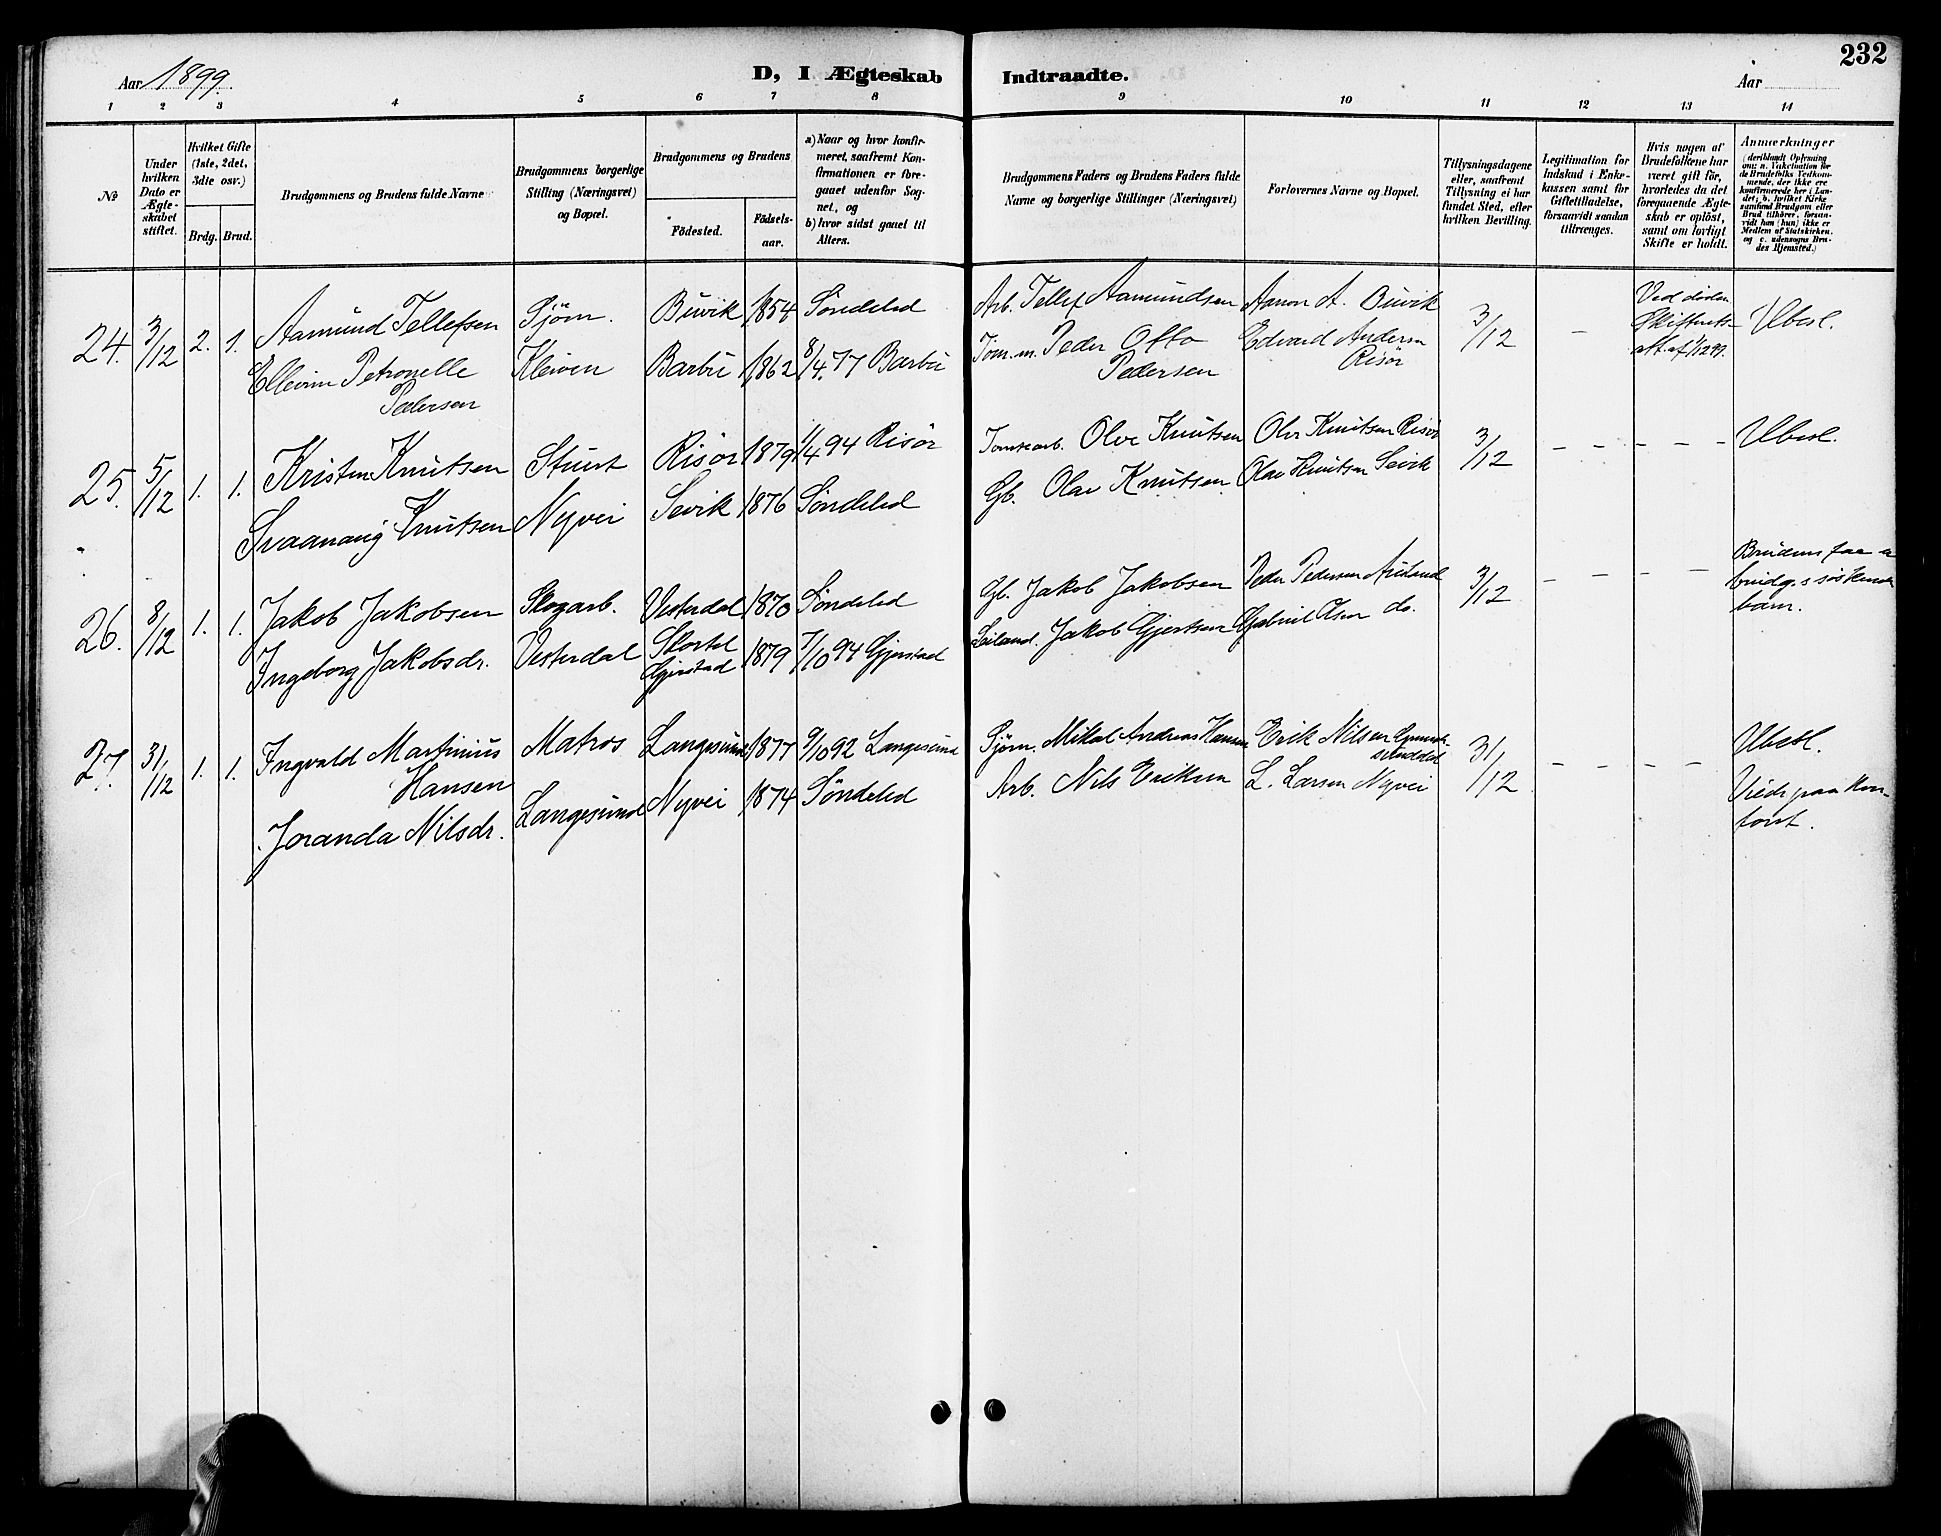 232
Aar 1899.
D, I Ægteskab Indtraadte.
Aar
1 2 3 4 5 6 7 8 9 10 11 12 13 14
No
Under hvilken Dato er Ægteskabet stiftet.
Hvilket Gifte (1ste, 2det, 3die osv.)
Brdg. Brud.
Brudgommens og Brudens fulde Navne
Brudgommens borgerlige Stilling (Næringsvei) og Bopæl.
Brudgommens og Brudens
Födested. Födselsaar.
a) Naar og hvor konfirmeret, saafremt Konfirmationen er foregaaet udenfor Sognet, og
b) hvor sidst gaaet til Alters.
Brudgommens Faders og Brudens Faders fulde Navne og borgerlige Stillinger (Næringsvei)
Forlovernes Navne og Bopæl.
Tillysningsdagene eller, saafremt Tillysning ei har fundet Sted, efter hvilken Bevilling.
Legitimation for Indskud i Enkekassen samt for Giftetilladelse, forsaavidt saadan tiltrænges.
Hvis nogen af Brudefolkene har været gift för, hvorledes da det foregaaende Ægteskab er oplöst, samt om lovligt Skifte er holdt.
Anmærkninger
(deriblandt Oplysning om: a. Vakcination for de Brudefolks Vedkommende, der ikke ere konfirmerede her i Landet; b. hvilket Kirkesamfund Brudgom eller Brud tilhörer, forsaavidt han (hun) ikke er Medlem af Statskirken, og c. udensogns Brudes Hjemsted.)
24. 3/12 2. 1. Aamund Tellefsen Sjøm. Buvik 1854 Søndeled Arb. Tellef Aamundsen Aanon A. Buvik 3/12 - Ved døden Skifterets att. af 1/12 99. Ubesl.
Ellevine Petronelle Pedersen Kleiven Barbu 1862 8/4. 77 Barbu Tøm.m. Peder Otto Pedersen Edvard Andersen Risør
25. 5/12 1. 1. Kristen Knutsen Stuert Risør 1879 1/4 94 Risør Tomtearb. Olve Knutsen Olve Knutsen Risør 3/12 - - - - Ubesl.
Svaanaug Knutsen Nyvei Sevik 1876 Søndeled Gb. Olav Knutsen Olav Knutsen Sevik
26. 8/12 1. 1. Jakob Jakobsen Skogarb. Vesterdal 1870 Søndeled Gb. Jakob Jakobsen Peder Pedersen Auland 3/12 - - - - Brudens faa
brudg.s søskende
barn.
Ingeborg Jakobsdr. Vesterdal Gjerstad 1879 7/10 94 Gjerstad Jakob Gjertsen Gabriel Olsen do.
27. 31/12 1. 1. Ingvald Martinius Hansen Matros Langesund 1877 9/10 92 Langesund Sjøm. Mikal Andreas Hansen Erik Nilsen 31/12 - - - - Ubesl.
Joranda Nilsdr. Langesund Nyvei 1874 Søndeled Arb. Nils Eriksen L. Larsen Nyvei Viede paa Kontoret.